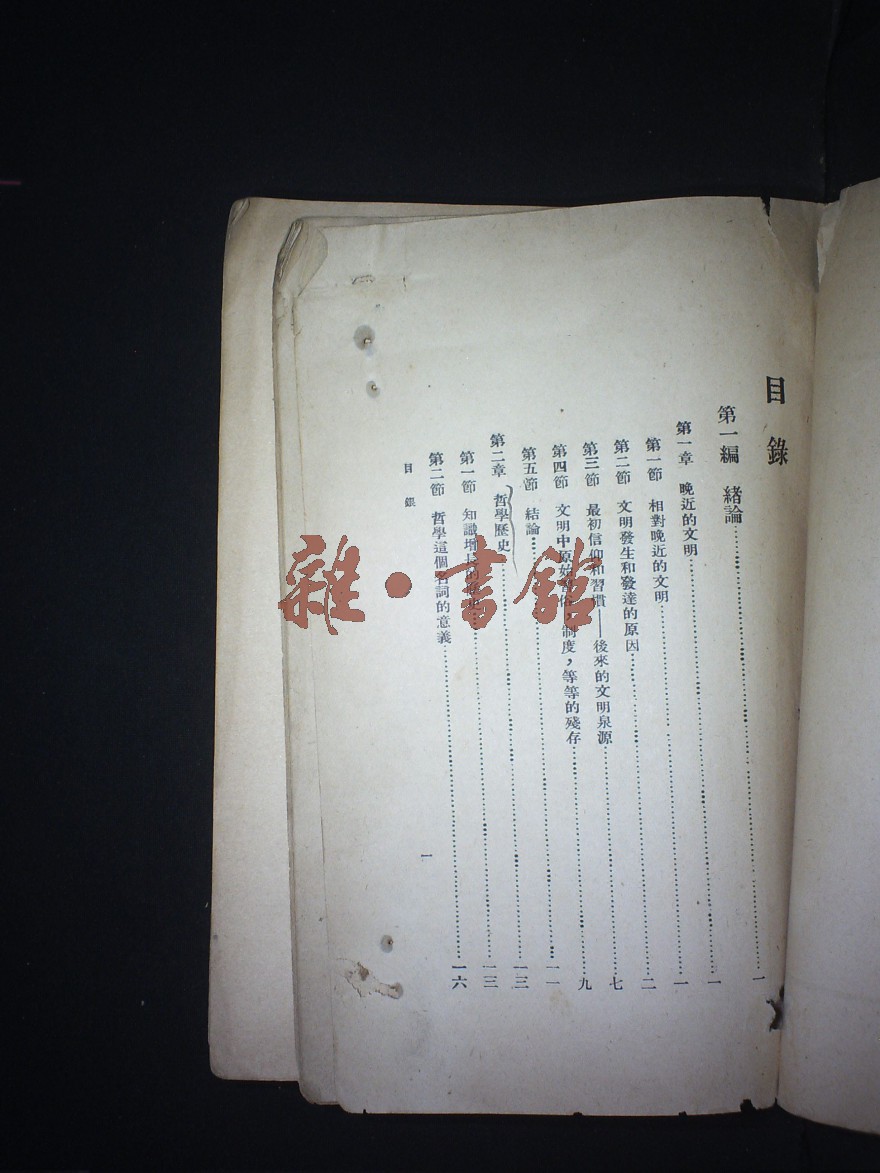 目錄
第一編 緒論………一
第一章 晚近的文明………一
第一節 相對晚近的文明………一
第二節 文明發生和發達的原因………二
第三節 最初信仰和習慣——後來的文明泉源………七
第四節 文明中原始習俗，制度，等等的殘存………九
第五節 結論………一一
第二章 哲學歷史………一三
第一節 知識增長的………一三
第二節 哲學這個名詞的意義………一六
目錄
一
雜·書館